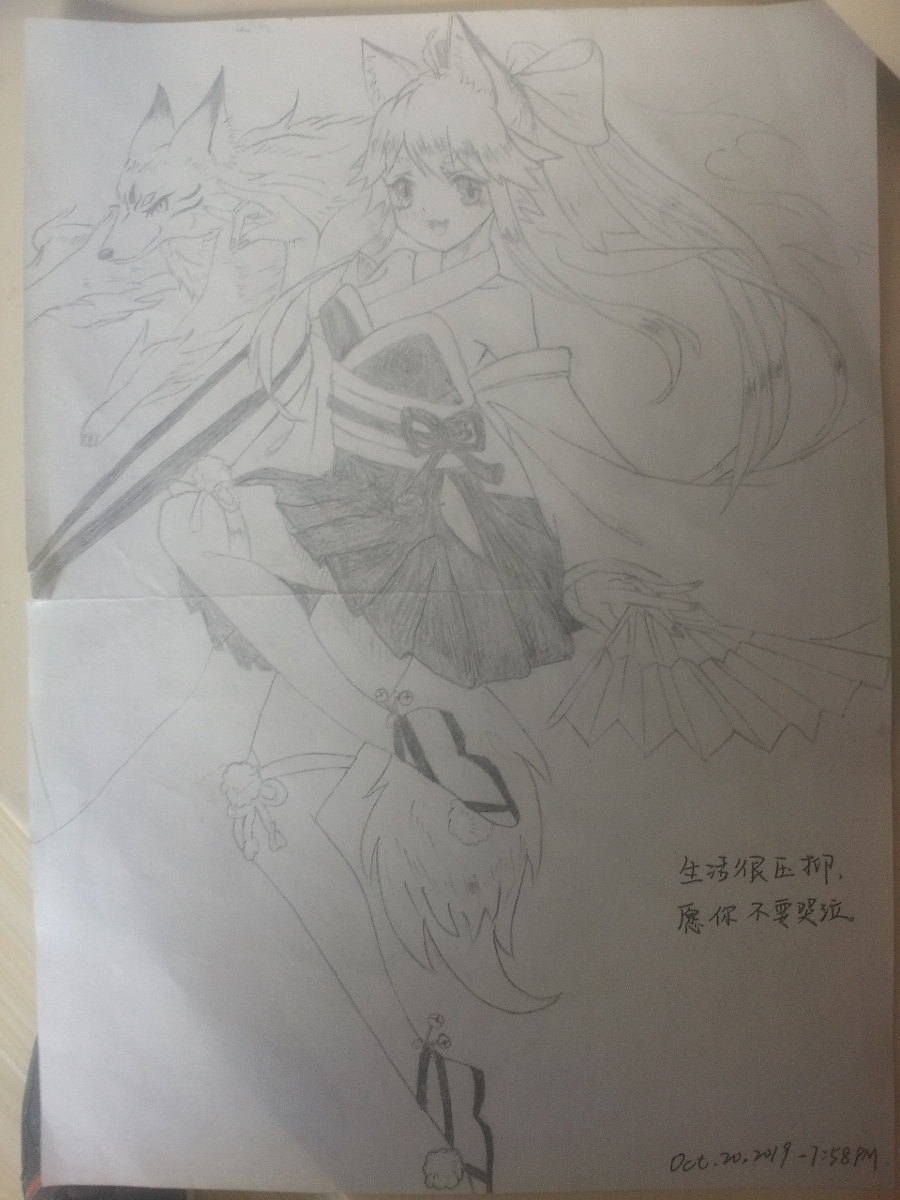 生活很压抑,
愿你不要哭泣。
Oct.20.2019-7:58PM